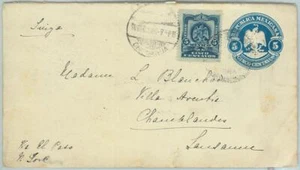 Suiza
REPUBLICA MEXICANA
5 5
CINCO CENTAVOS
5 5
CINCO CENTAVOS
Madame L. Blanchod
Villa
Chamblandes
Lausanne
Via El Paso
N. York